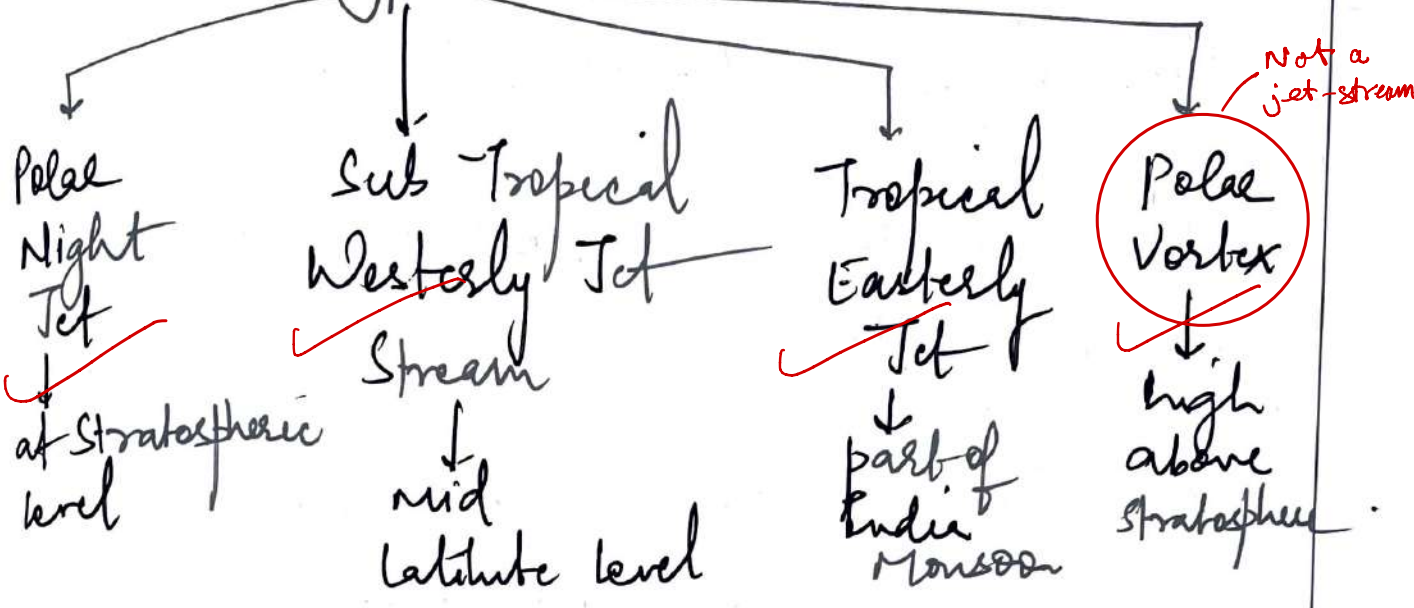 Not a
jet-stream
Polar
Night
Jet
at Stratospheric
level
Sub Tropical
Westerly Jet
Stream
mid
Latitute level
Tropical
Easterly
Jet
part of
India
Monsoon
Polar
Vortex
high
above
stratosphere